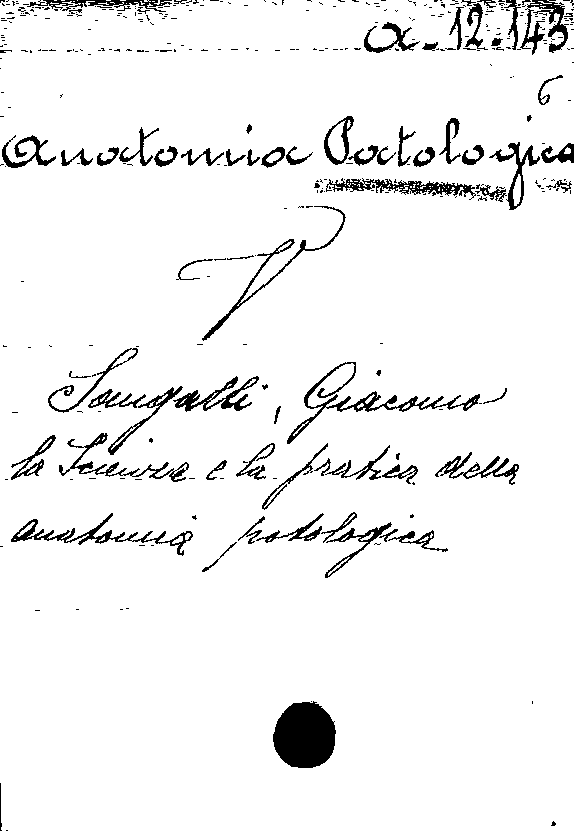 a-12-143
6
Anatomia Patologica
V
Sangalli, Giacomo
la Scienza e la pratica della
anatomia patologica